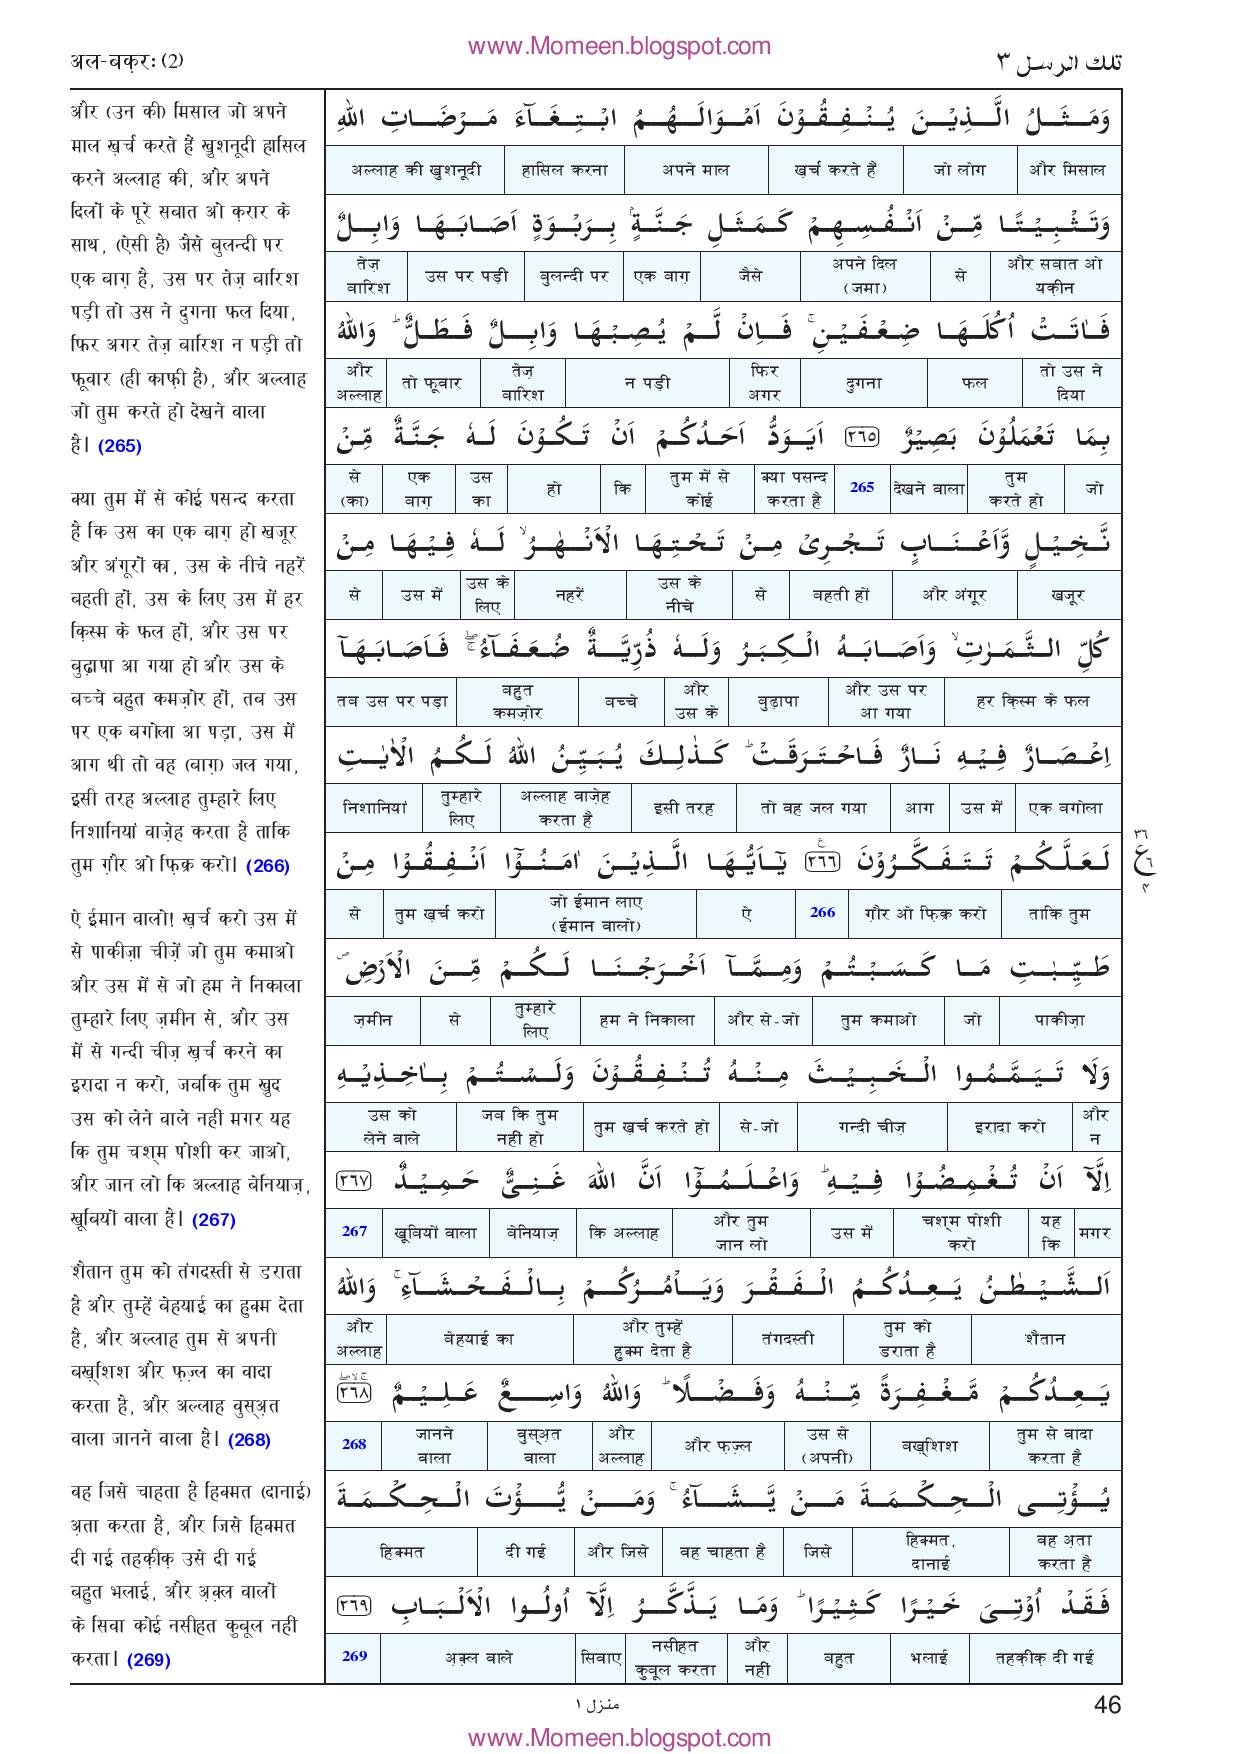 www.Momeen.blogspot.com
अल-बक़रः (2)
تلك الرسل ٣
और (उन की) मिसाल जो अपने
माल ख़र्च करते हैं ख़ुशनूदी हासिल
करने अल्लाह की, और अपने
दिलों के पूरे सबात ओ क़रार के
साथ, (ऐसी है) जैसे बुलन्दी पर
एक बाग़ है, उस पर तेज़ बारिश
पड़ी तो उस ने दुगना फल दिया,
फिर अगर तेज़ बारिश न पड़ी तो
फूवार (ही काफ़ी है), और अल्लाह
जो तुम करते हो देखने वाला
है। (265)
क्या तुम में से कोई पसन्द करता
है कि उस का एक बाग़ हो खजूर
और अंगूरों का, उस के नीचे नहरें
बहती हों, उस के लिए उस में हर
क़िस्म के फल हों, और उस पर
बुढ़ापा आ गया हो और उस के
बच्चे बहुत कमज़ोर हों, तब उस
पर एक बगोला आ पड़ा, उस में
आग थी तो वह (बाग़) जल गया,
इसी तरह अल्लाह तुम्हारे लिए
निशानियां वाज़ेह करता है ताकि
तुम ग़ौर ओ फ़िक्र करो। (266)
ऐ ईमान वालो! ख़र्च करो उस में
से पाकीज़ा चीज़ें जो तुम कमाओ
और उस में से जो हम ने निकाला
तुम्हारे लिए ज़मीन से, और उस
में से गन्दी चीज़ ख़र्च करने का
इरादा न करो, जबकि तुम ख़ुद
उस को लेने वाले नहीं मगर यह
कि तुम चश्म पोशी कर जाओ,
और जान लो कि अल्लाह बेनियाज़,
ख़ूबियों वाला है। (267)
शैतान तुम को तंगदस्ती से डराता
है और तुम्हें बेहयाई का हुक्म देता
है, और अल्लाह तुम से अपनी
बख़्शिश और फ़ज़्ल का वादा
करता है, और अल्लाह वुस्अ़त
वाला जानने वाला है। (268)
वह जिसे चाहता है हिक्मत (दानाई)
अ़ता करता है, और जिसे हिक्मत
दी गई तहक़ीक़ उसे दी गई
बहुत भलाई, और अ़क़्ल वालों
के सिवा कोई नसीहत क़ुबूल नहीं
करता। (269)
وَمَثَلُ الَّذِيْنَ يُنْفِقُوْنَ اَمْوَالَهُمُ ابْتِغَآءَ مَرْضَاتِ اللهِ
और मिसाल जो लोग ख़र्च करते हैं अपने माल हासिल करना अल्लाह की ख़ुशनूदी
وَتَثْبِيْتًا مِّنْ اَنْفُسِهِمْ كَمَثَلِ جَنَّةٍۢ بِرَبْوَةٍ اَصَابَهَا وَابِلٌ
और सबात ओ यक़ीन से अपने दिल (जमा) जैसे एक बाग़ बुलन्दी पर उस पर पड़ी तेज़ बारिश
فَاٰتَتْ اُكُلَهَا ضِعْفَيْنِ ۚ فَاِنْ لَّمْ يُصِبْهَا وَابِلٌ فَطَلٌّ ؕ وَاللهُ
तो उस ने दिया फल दुगना फिर अगर न पड़ी तेज़ बारिश तो फूवार और अल्लाह
بِمَا تَعْمَلُوْنَ بَصِيْرٌ ٢٦٥ اَيَوَدُّ اَحَدُكُمْ اَنْ تَكُوْنَ لَهٗ جَنَّةٌ مِّنْ
जो तुम करते हो देखने वाला 265 क्या पसन्द करता है तुम में से कोई कि हो उस का एक बाग़ से (का)
نَّخِيْلٍ وَّاَعْنَابٍ تَجْرِيْ مِنْ تَحْتِهَا الْاَنْهٰرُ ۙ لَهٗ فِيْهَا مِنْ
खजूर और अंगूर बहती हों से उस के नीचे नहरें उस के लिए उस में से
كُلِّ الثَّمَرٰتِ ۙ وَاَصَابَهُ الْكِبَرُ وَلَهٗ ذُرِّيَّةٌ ضُعَفَآءُ ۖۚ فَاَصَابَهَآ
हर क़िस्म के फल और उस पर आ गया बुढ़ापा और उस के बच्चे बहुत कमज़ोर तब उस पर पड़ा
اِعْصَارٌ فِيْهِ نَارٌ فَاحْتَرَقَتْ ؕ كَذٰلِكَ يُبَيِّنُ اللهُ لَكُمُ الْاٰيٰتِ
एक बगोला उस में आग तो वह जल गया इसी तरह अल्लाह वाज़ेह करता है तुम्हारे लिए निशानियां
لَعَلَّكُمْ تَتَفَكَّرُوْنَ ٢٦٦ۧ يٰٓاَيُّهَا الَّذِيْنَ اٰمَنُوْٓا اَنْفِقُوْا مِنْ
٣٦ ع ٦ ٤
ताकि तुम ग़ौर ओ फ़िक्र करो 266 ऐ जो ईमान लाए (ईमान वालो) तुम ख़र्च करो से
طَيِّبٰتِ مَا كَسَبْتُمْ وَمِمَّآ اَخْرَجْنَا لَكُمْ مِّنَ الْاَرْضِ ۪
पाकीज़ा जो तुम कमाओ और से-जो हम ने निकाला तुम्हारे लिए से ज़मीन
وَلَا تَيَمَّمُوا الْخَبِيْثَ مِنْهُ تُنْفِقُوْنَ وَلَسْتُمْ بِاٰخِذِيْهِ
और न इरादा करो गन्दी चीज़ से-जो तुम ख़र्च करते हो जब कि तुम नहीं हो उस को लेने वाले
اِلَّآ اَنْ تُغْمِضُوْا فِيْهِ ؕ وَاعْلَمُوْٓا اَنَّ اللهَ غَنِيٌّ حَمِيْدٌ ٢٦٧
मगर यह कि चश्म पोशी करो उस में और तुम जान लो कि अल्लाह बेनियाज़ ख़ूबियों वाला 267
اَلشَّيْطٰنُ يَعِدُكُمُ الْفَقْرَ وَيَاْمُرُكُمْ بِالْفَحْشَآءِ ۚ وَاللهُ
शैतान तुम को डराता है तंगदस्ती और तुम्हें हुक्म देता है बेहयाई का और अल्लाह
يَعِدُكُمْ مَّغْفِرَةً مِّنْهُ وَفَضْلًا ؕ وَاللهُ وَاسِعٌ عَلِيْمٌ ٢٦٨
तुम से वादा करता है बख़्शिश उस से (अपनी) और फ़ज़्ल और अल्लाह वुस्अ़त वाला जानने वाला 268
يُؤْتِى الْحِكْمَةَ مَنْ يَّشَآءُ ۚ وَمَنْ يُّؤْتَ الْحِكْمَةَ
वह अ़ता करता है हिक्मत, दानाई जिसे वह चाहता है और जिसे दी गई हिक्मत
فَقَدْ اُوْتِىَ خَيْرًا كَثِيْرًا ؕ وَمَا يَذَّكَّرُ اِلَّآ اُولُوا الْاَلْبَابِ ٢٦٩
तहक़ीक़ दी गई भलाई बहुत और नहीं नसीहत क़ुबूल करता सिवाए अ़क़्ल वाले 269
منزل ١
46
www.Momeen.blogspot.com